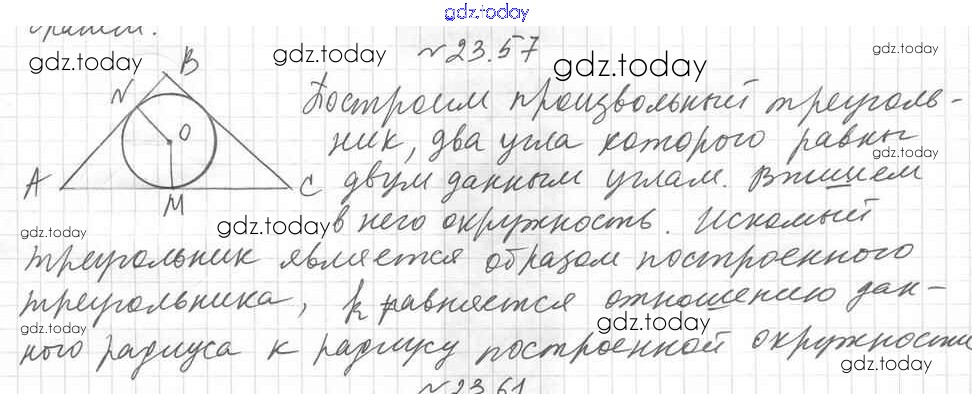 gdz.today
gdz.today gdz.today №23.57 gdz.today gdz.today
B
N
O
A
C
M
Построим произвольный треуголь-
ник, два угла которого равны
gdz.today
двум данным углам. Впишем
в него окружность. Искомый
gdz.today gdz.today
треугольник является образом построенного
треугольника, k равняется отношению дан-
gdz.today gdz.today
ного радиуса к радиусу построенной окружности
gdz.today
№23.61